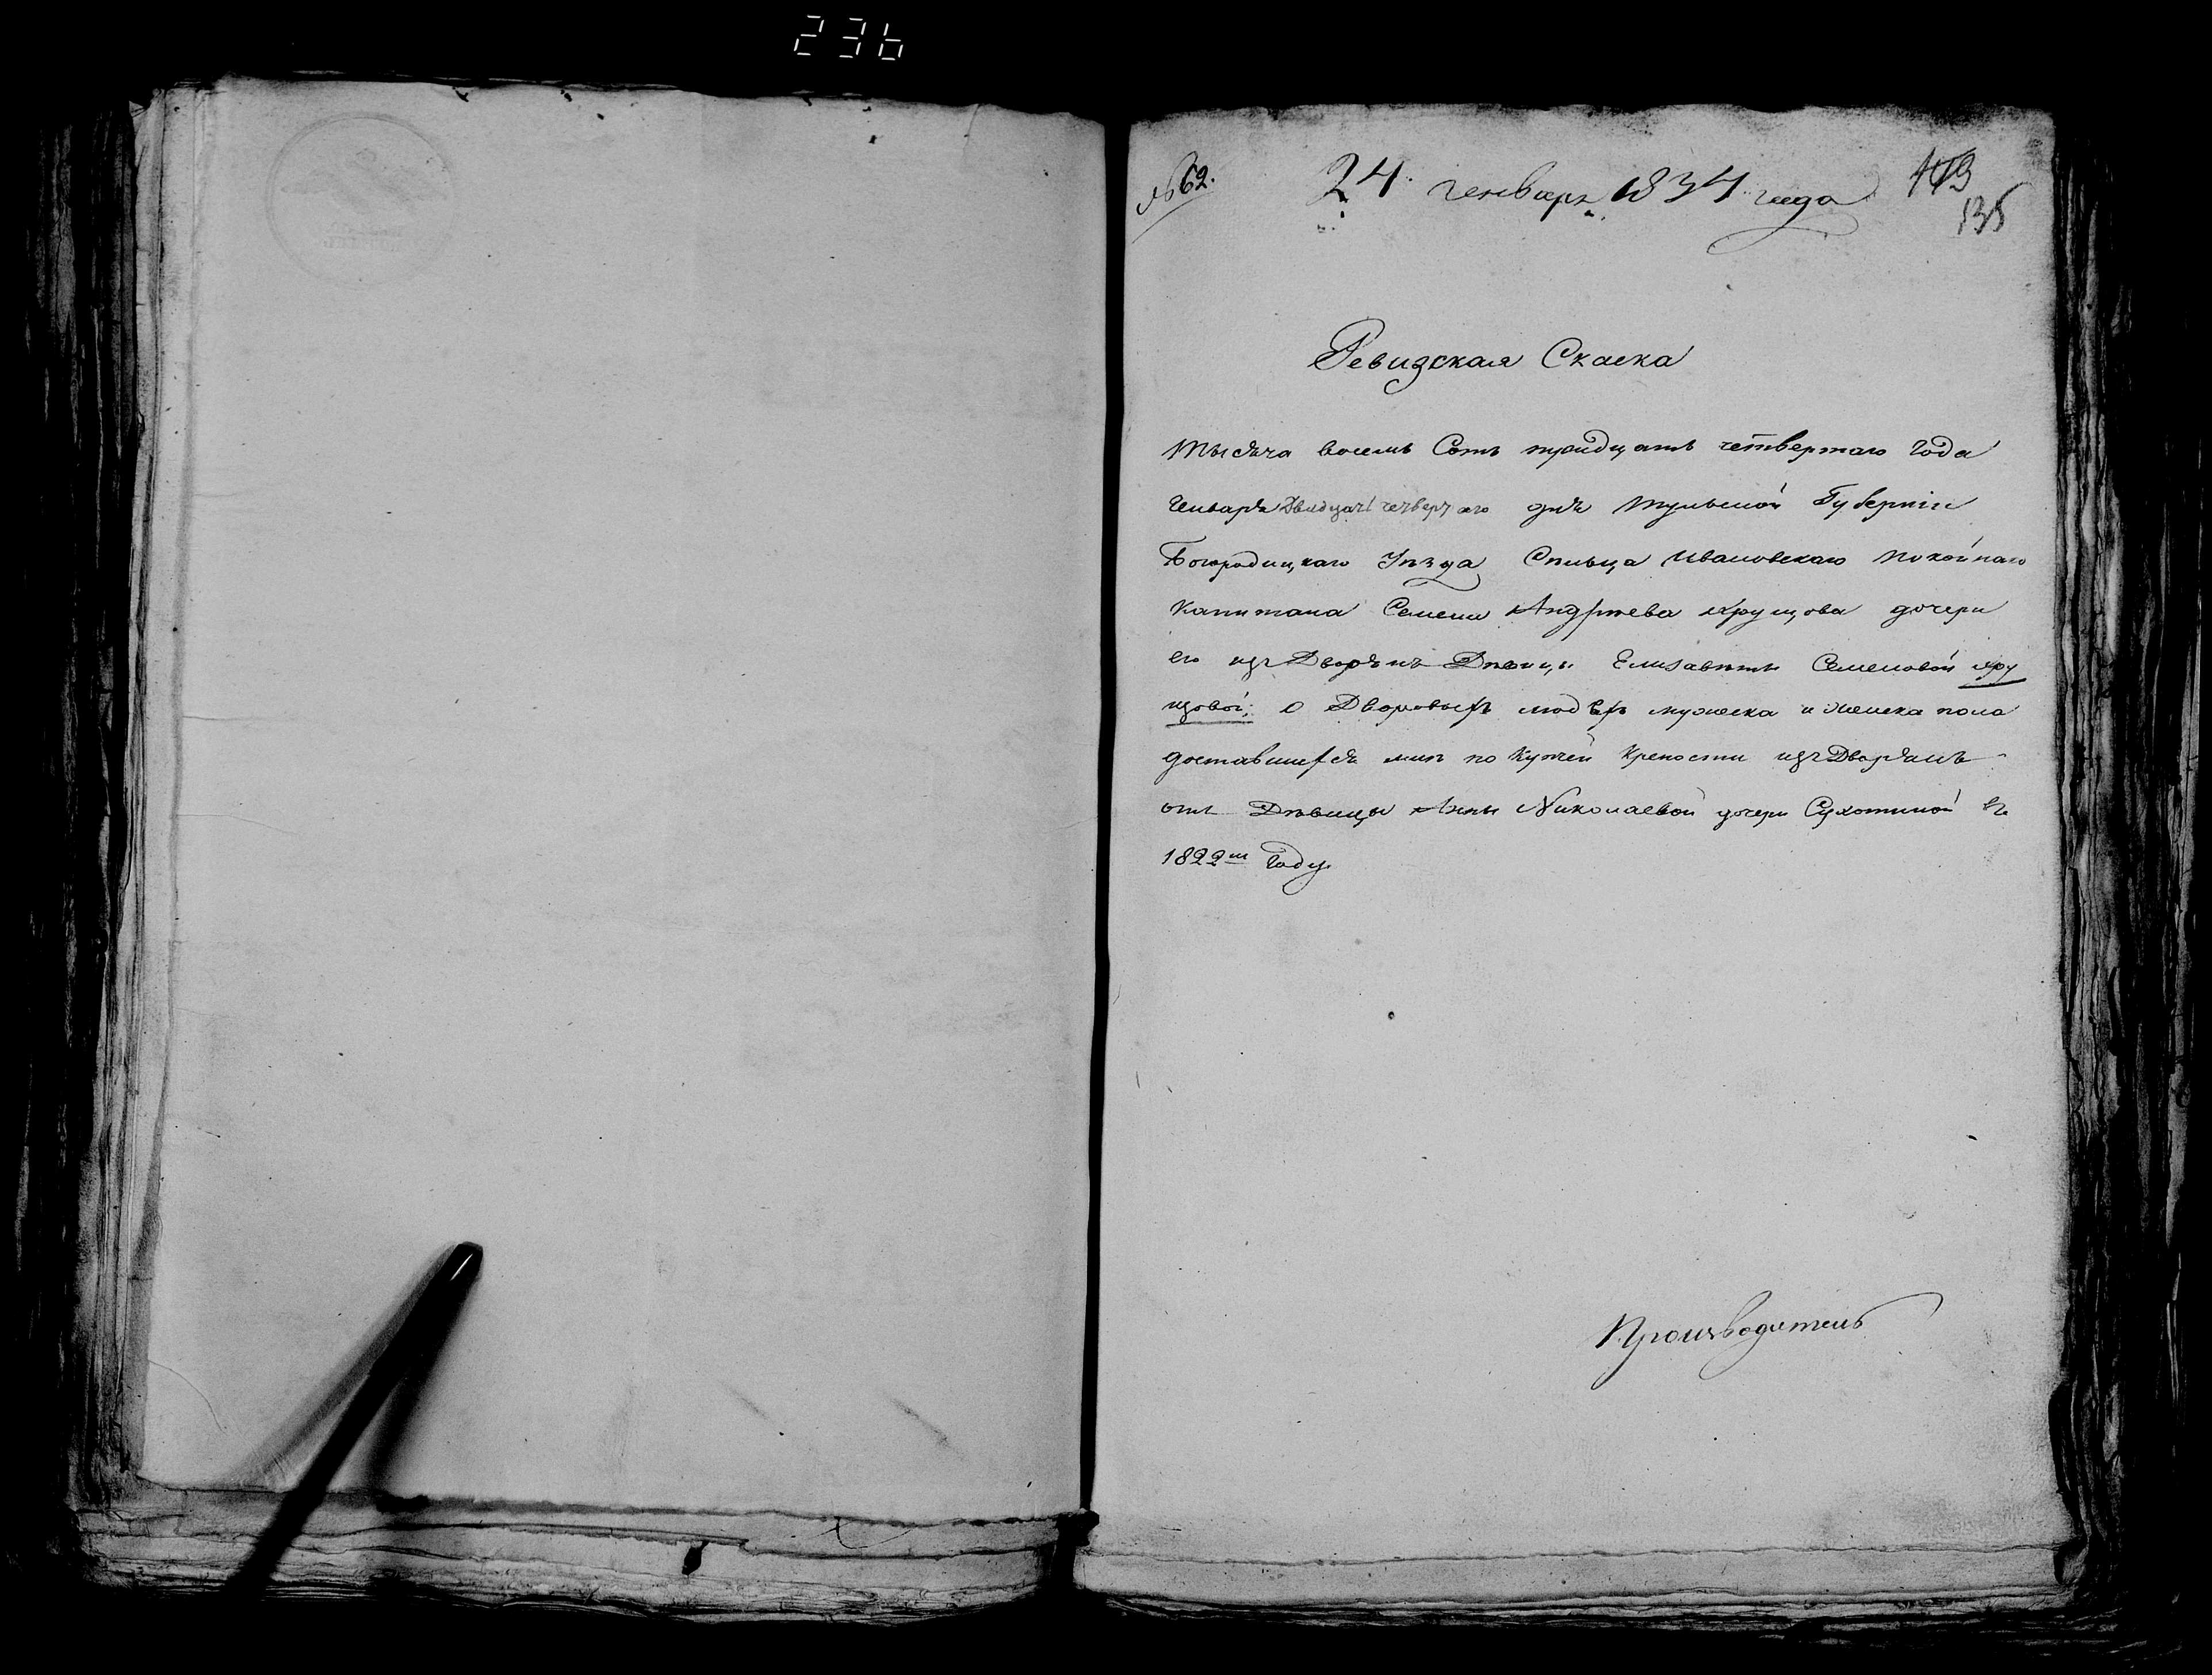 236
№ 62.
24 генваря 1834 года
135
Ревизская Скаска
Тысяча восемь Сотъ тридцать четвертаго Года
Генваря Двадцать четвертаго дня Тульской Губерніи
Богородицкаго Уѣзда Сельца Ивановскаго покойнаго
Капитана Семена Андреева Хрущова дочери
его изъ Дворянъ Дѣвицы Елизаветы Семеновой Хру
щовой; о Дворовыхъ людѣхъ мужеска и женска пола
доставшихся мнѣ по Купчей Крепости изъ Дворянъ
отъ Дѣвицы Анны Николаевой дочери Сухотиной въ
1822м Году
Производитель